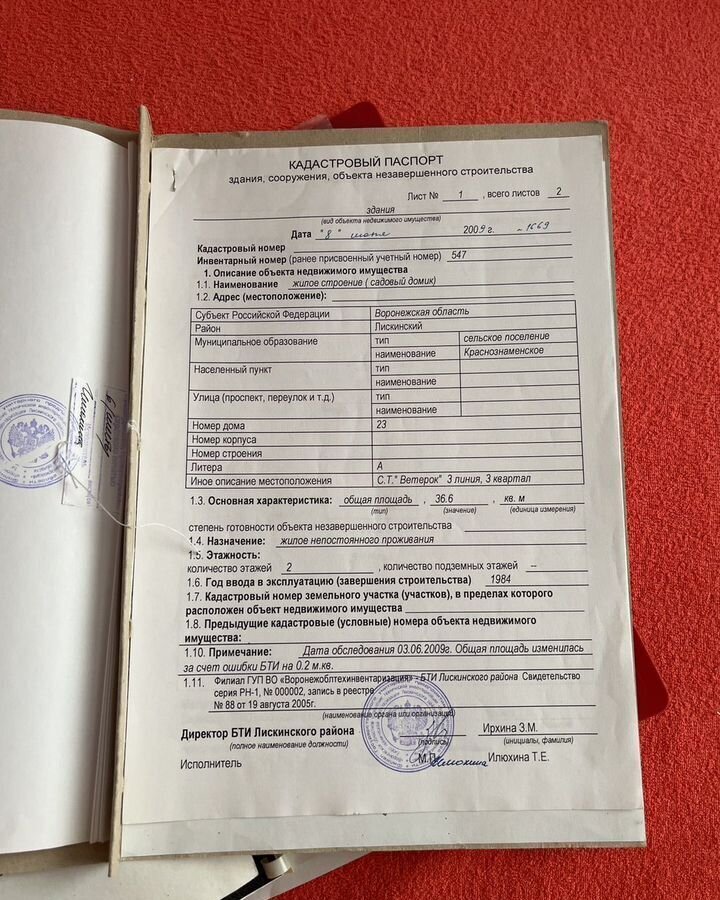 КАДАСТРОВЫЙ ПАСПОРТ
здания, сооружения, объекта незавершенного строительства
Лист № 1 , всего листов 2
здания
(вид объекта недвижимого имущества)
Дата "8" 2009 г. - 1669
Кадастровый номер
Инвентарный номер (ранее присвоенный учетный номер) 547
1. Описание объекта недвижимого имущества
1.1. Наименование жилое строение ( садовый домик)
1.2. Адрес (местоположение):
Субъект Российской Федерации Воронежская область
Район Лискинский
Муниципальное образование тип сельское поселение
наименование Краснознаменское
Населенный пункт тип
наименование
Улица (проспект, переулок и т.д.) тип
наименование
Номер дома 23
Номер корпуса
Номер строения
Литера А
Иное описание местоположения С.Т." Ветерок" 3 линия, 3 квартал
1.3. Основная характеристика: общая площадь , 36.6 , кв. м
(тип) (значение) (единица измерения)
степень готовности объекта незавершенного строительства
1.4. Назначение: жилое непостоянного проживания
1.5. Этажность:
количество этажей 2 , количество подземных этажей --
1.6. Год ввода в эксплуатацию (завершения строительства) 1984
1.7. Кадастровый номер земельного участка (участков), в пределах которого
расположен объект недвижимого имущества
1.8. Предыдущие кадастровые (условные) номера объекта недвижимого
имущества:
1.10. Примечание: Дата обследования 03.06.2009г. Общая площадь изменилась
за счет ошибки БТИ на 0.2 м.кв.
1.11. Филиал ГУП ВО «Воронежоблтехинвентаризация» - БТИ Лискинского района Свидетельство
серия РН-1, № 000002, запись в реестре
№ 88 от 19 августа 2005г.
(наименование органа или организации)
Директор БТИ Лискинского района Ирхина З.М.
(полное наименование должности) (подпись) (инициалы, фамилия)
М.П.
Исполнитель Илюхина Т.Е.